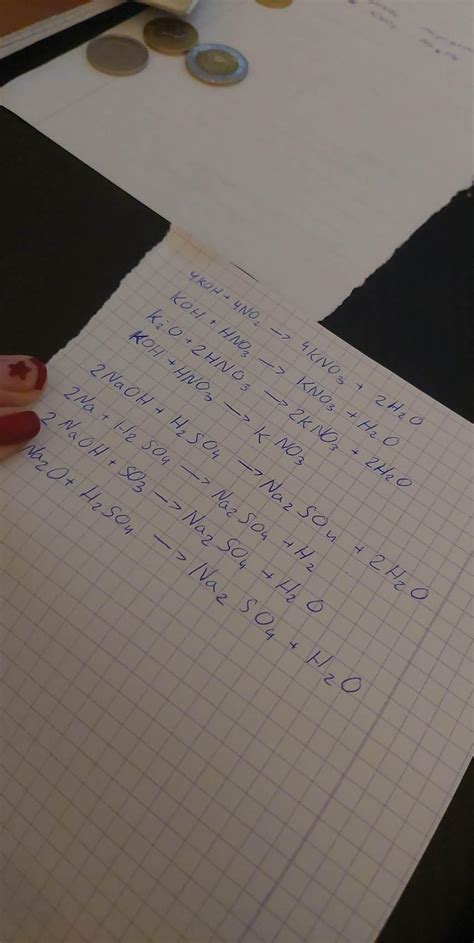 4KOH + 4NO₂ → 4KNO₃ + 2H₂O
KOH + HNO₃ → KNO₃ + H₂O
K₂O + 2HNO₃ → 2KNO₃ + 2H₂O
KOH + HNO₃ → KNO₃
2NaOH + H₂SO₄ → Na₂SO₄ + 2H₂O
2Na + H₂SO₄ → Na₂SO₄ + H₂
2NaOH + SO₃ → Na₂SO₄ + H₂O
Na₂O + H₂SO₄ → Na₂SO₄ + H₂O